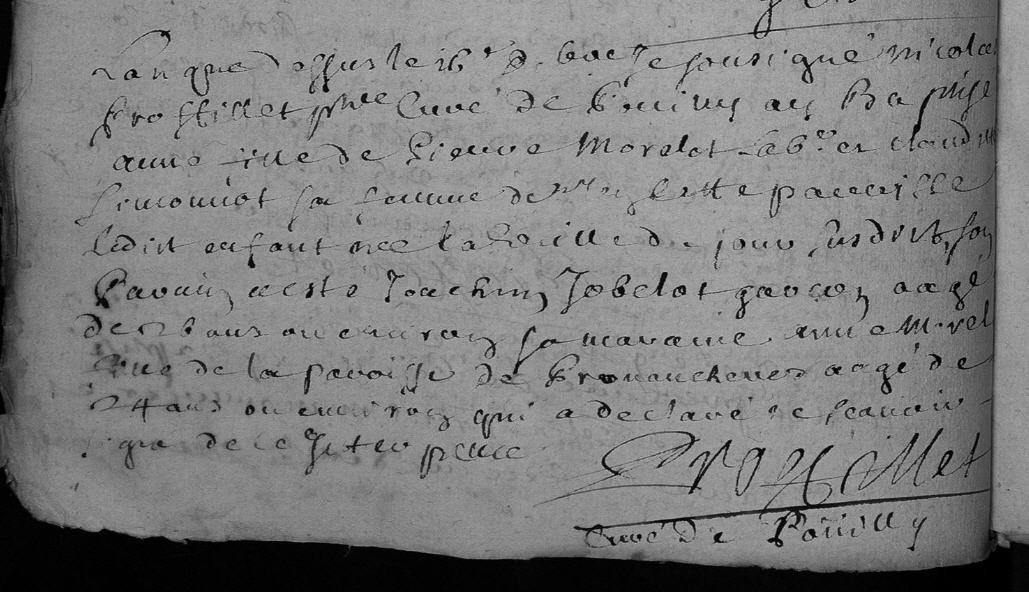 Lan que dessus le 16e d. 
soussigné Nicolas
Prostillet ptre Curé de Pouilly ay Baptisé
anne fille de Pierre Morelot Labr et claudette
Simonnot sa femme de cette paroisse
Ledit enfant nee la veille du jour susdit, son
Parain a esté Joachin Jobelot garcon aagé
de ans ou environ sa maraine anne Morel
fille de la paroisse de aagé de
24 ans ou environ qui a declaré ne scavoir
signer de ce Interpellé
Prostillet
Curé de Pouilly